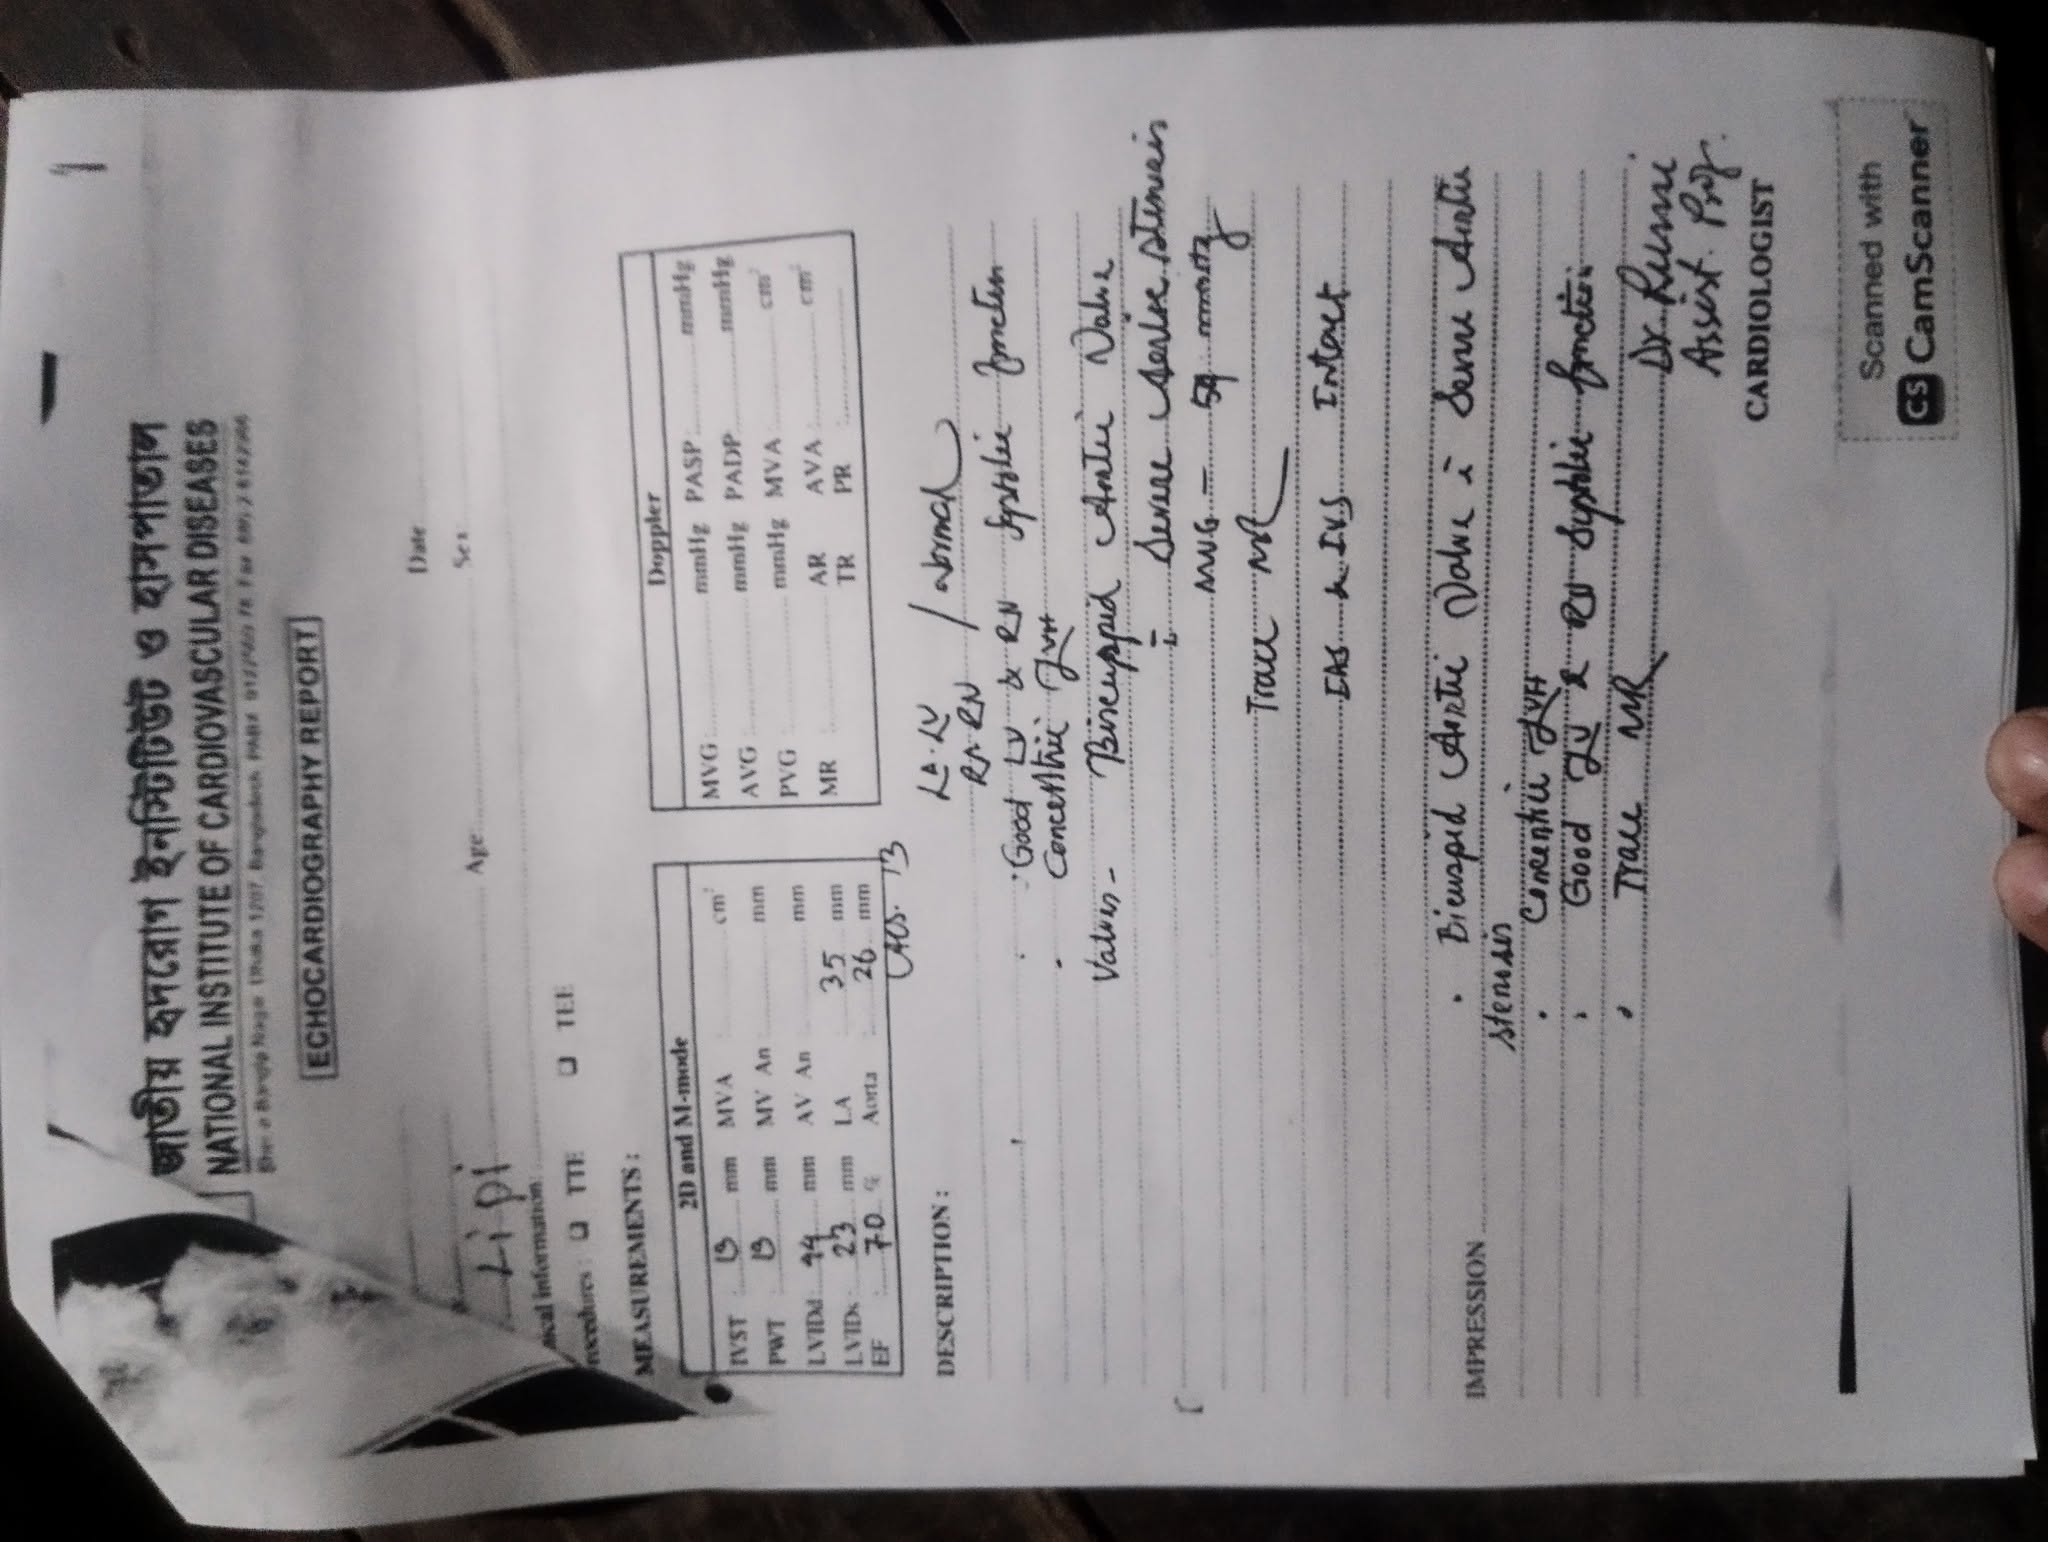 জাতীয় হৃদরোগ ইনস্টিটিউট ও হাসপাতাল
NATIONAL INSTITUTE OF CARDIOVASCULAR DISEASES
ECHOCARDIOGRAPHY REPORT
Date
Lipi Age Sex
ical information
ocedures : ❑ TTE ❑ TEE
MEASUREMENTS :
2D and M-mode
IVST : 13 mm MVA : cm²
PWT : 13 mm MV An : mm
LVIDd : 44 mm AV An : mm
LVIDs : 23 mm LA : 35 mm
EF : 70 % Aorta : 26 mm
ACS. 13
Doppler
MVG : mmHg PASP : mmHg
AVG : mmHg PADP : mmHg
PVG : mmHg MVA : cm²
MR AR AVA : cm²
TR PR :
DESCRIPTION :
LA. LV
RA. RV / Normal
· Good LV & RV Systolic function
· Concentric LVH
Valves - Bicuspid Aortic Valve
c̄ Severe Aortic stenosis
MVG - 59 mmHg
Trace MR
IAS & IVS Intact
IMPRESSION
· Bicuspid Aortic Valve c̄ Severe Aortic
stenosis
· Concentric LVH
· Good LV & RV Systolic function
· Trace MR
Assist. Prof.
CARDIOLOGIST
Scanned with
CS CamScanner